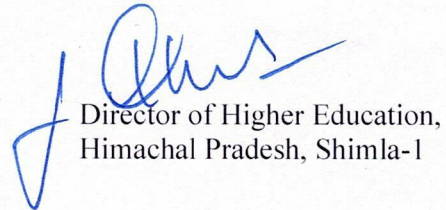 Director of Higher Education,
Himachal Pradesh, Shimla-1